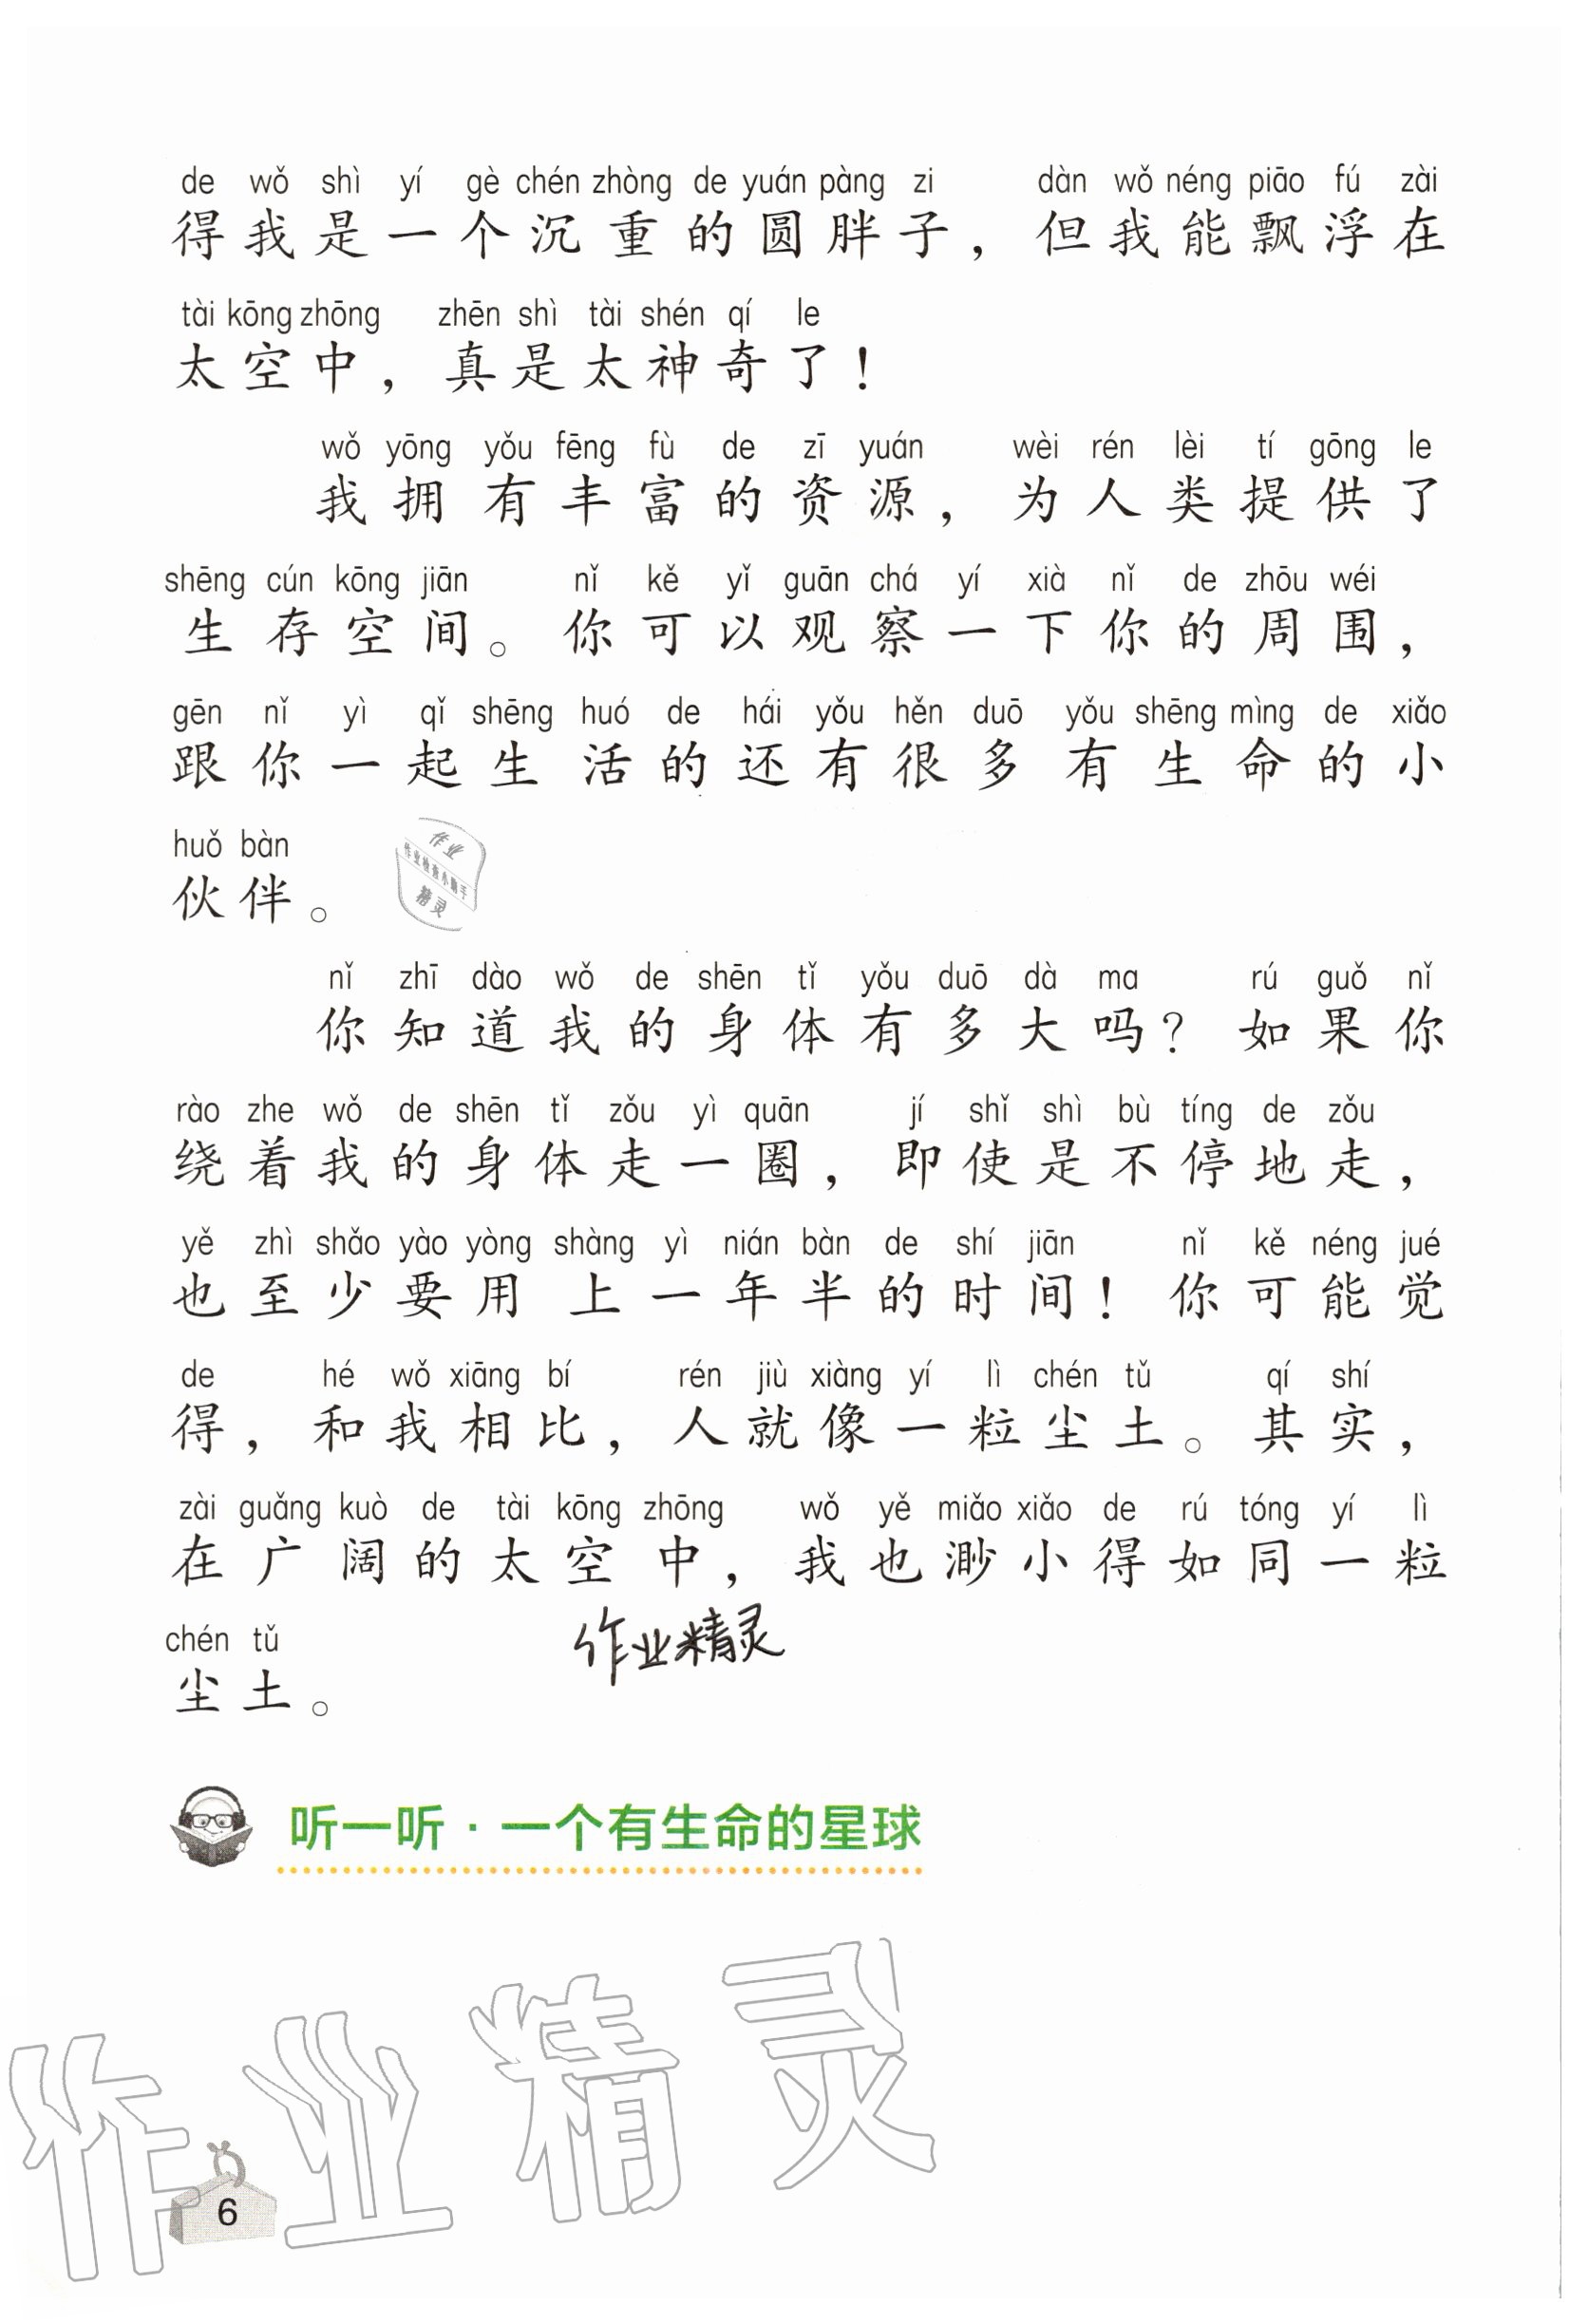 de wǒ shì yí gè chén zhòng de yuán pàng zi dàn wǒ néng piāo fú zài
得我是一个沉重的圆胖子，但我能飘浮在
tài kōng zhōng zhēn shì tài shén qí le
太空中，真是太神奇了！
wǒ yōng yǒu fēng fù de zī yuán wèi rén lèi tí gōng le
我拥有丰富的资源，为人类提供了
shēng cún kōng jiān nǐ kě yǐ guān chá yí xià nǐ de zhōu wéi
生存空间。你可以观察一下你的周围，
gēn nǐ yì qǐ shēng huó de hái yǒu hěn duō yǒu shēng mìng de xiǎo
跟你一起生活的还有很多有生命的小
huǒ bàn
伙伴。
作业
作业检查小助手
精灵
nǐ zhī dào wǒ de shēn tǐ yǒu duō dà ma rú guǒ nǐ
你知道我的身体有多大吗？如果你
rào zhe wǒ de shēn tǐ zǒu yì quān jí shǐ shì bù tíng de zǒu
绕着我的身体走一圈，即使是不停地走，
yě zhì shǎo yào yòng shàng yì nián bàn de shí jiān nǐ kě néng jué
也至少要用上一年半的时间！你可能觉
de hé wǒ xiāng bí rén jiù xiàng yí lì chén tǔ qí shí
得，和我相比，人就像一粒尘土。其实，
zài guǎng kuò de tài kōng zhōng wǒ yě miǎo xiǎo de rú tóng yí lì
在广阔的太空中，我也渺小得如同一粒
chén tǔ
尘土。
作业精灵
听一听·一个有生命的星球
作业精灵
6